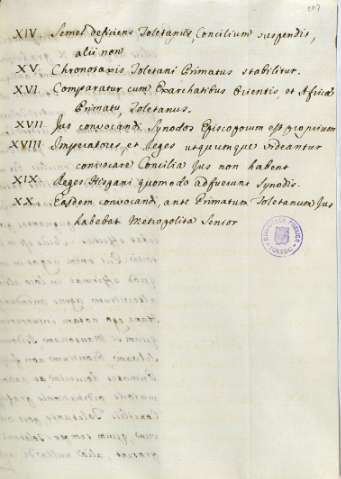 XIV Semel deficiens Toletanus, Concilium suspendit,
alii non
XV Chronotaxis Toletani Primatus stabilitur.
XVI Comparatur cum Exarchatibus Orientis, et Africæ
Primatu, Toletanus.
XVII Jus convocandi Synodos Episcoporum est proprium
XVIII Imperatores, et Reges utcumque videantur
convocare Concilia Jus non habent
XIX Reges Hispani quomodo adfuerunt Synodis.
XX Easdem convocandi, ante Primatum Toletanum Jus
habebat Metropolita Senior
BIBLIOTECA PUBLICA
TOLEDO